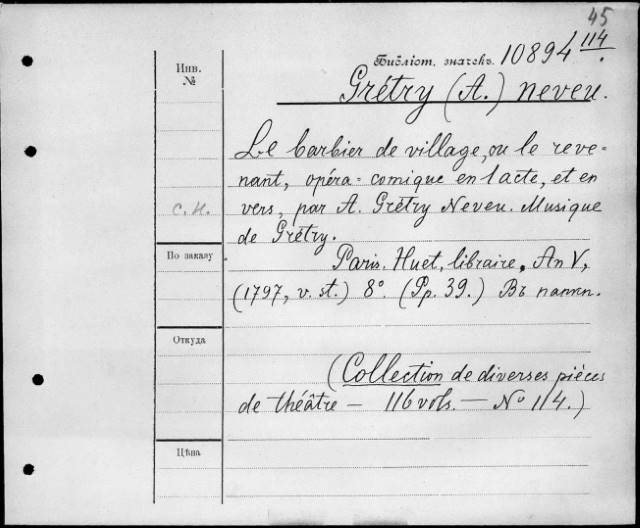 45
Библіот. значекъ. 10894 114.
Инв.
№
Grétry (A.) neveu.
Le barbier de village, ou le reve=
nant, opéra=comique en 1 acte, et en
с.н.
vers, par A. Grétry Neveu. Musique
de Grétry.
По заказу
Paris. Huet, libraire, An V,
(1797, v. st.) 8° (Pp. 39.) Въ паппк.
Откуда
(Collection de diverses pièces
de théâtre — 116 vols. — № 114.)
Цѣна